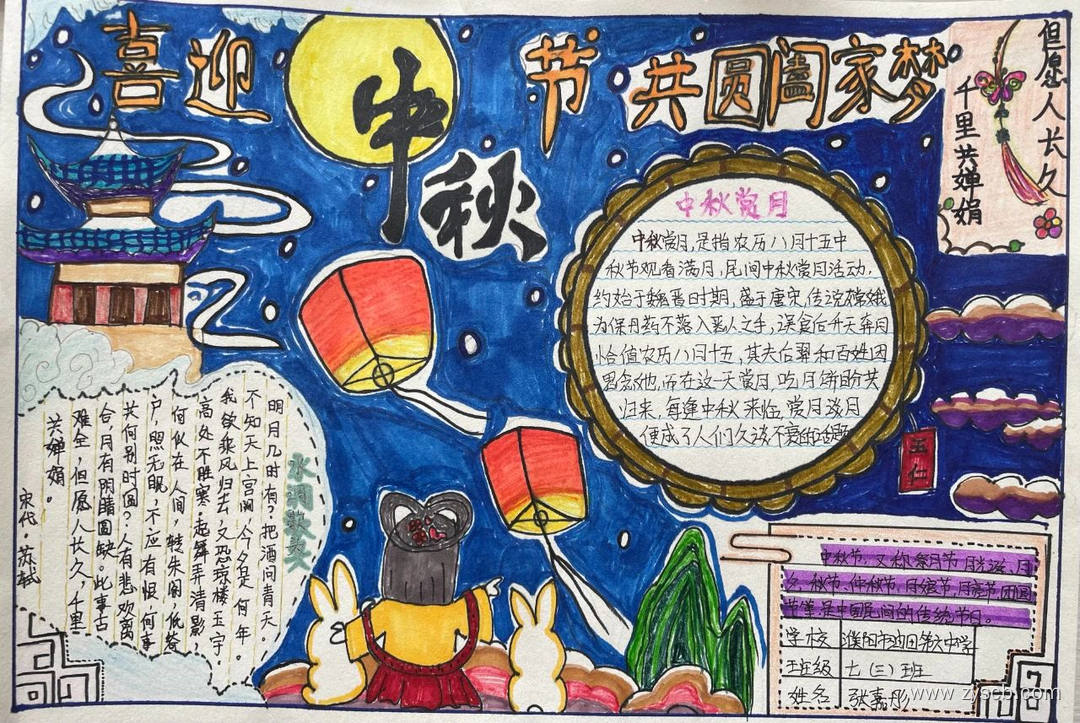 喜迎中秋节 共圆阖家梦
但愿人长久
千里共婵娟
中秋赏月
中秋赏月,是指农历八月十五中
秋节观看满月,民间中秋赏月活动,
约始于魏晋时期,盛于唐宋,传说嫦娥
为保月药不落入恶人之手,误食后升天奔月
恰值农历八月十五,其夫后羿和百姓因
思念她,而在这一天赏月,吃月饼盼其
归来,每逢中秋来临,赏月谈月
便成了人们久谈不衰的话题
五仁
水调歌头
明月几时有?把酒问青天。
不知天上宫阙,今夕是何年。
我欲乘风归去,又恐琼楼玉宇,
高处不胜寒。起舞弄清影,
何似在人间,转朱阁,低绮
户,照无眠。不应有恨,何事
共何别时圆?人有悲欢离
合月有阴晴圆缺。此事古
难全,但愿人长久,千里
共婵娟。
宋代·苏轼
中秋节,又称祭月节、月
夕、秋节、仲秋节、月娘节、月亮节、团圆
节等,是中国民间的传统节日。
学校
班级 七(三)班
姓名 张嘉彤
www.zyscb.com